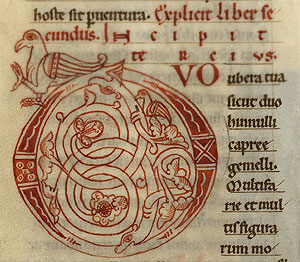 hoste sit puentura. Explicit liber se
cundus. Incipit
tercius.
DVO
ubera tua
sicut duo
hinnulli
capree
gemelli.
Multifa
rie et mul
tis figura
rum mo